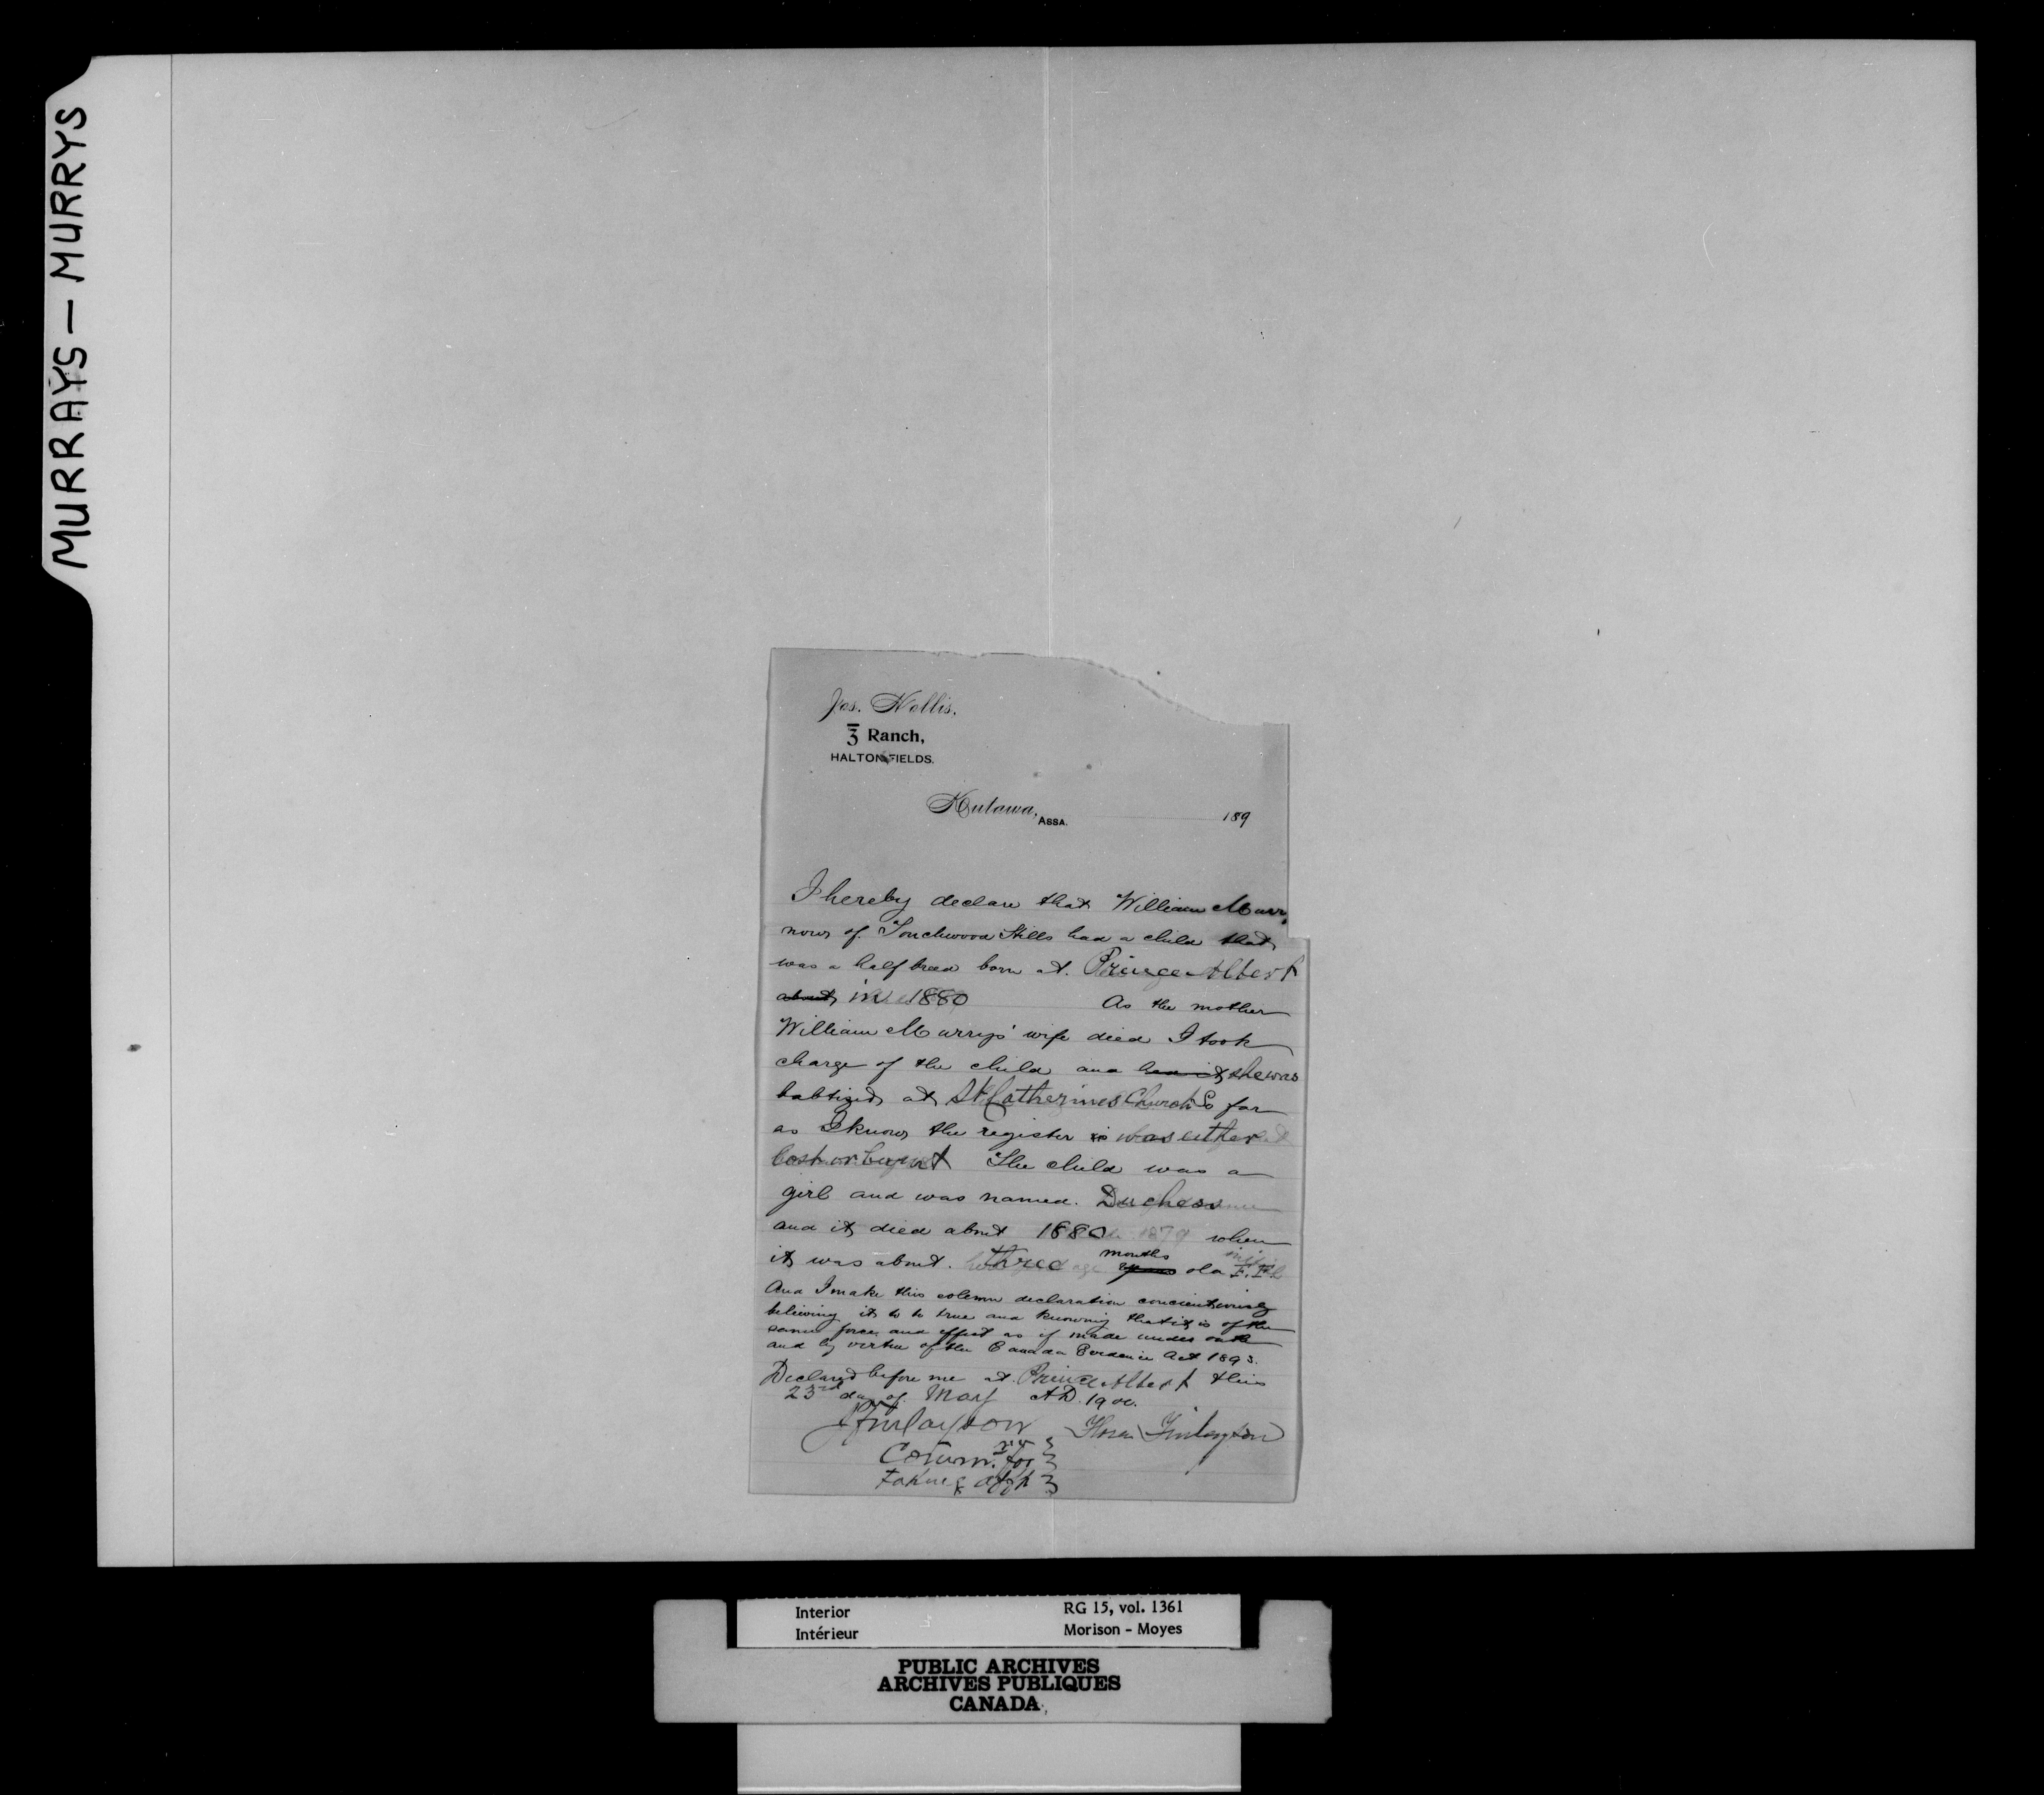 MURRAYS — MURRYS
Jos. Hollis.
3 Ranch,
HALTON FIELDS.
Kutawa, ASSA. 189
I hereby declare that William Murr
now of Touchwood Hills had a child that
was a half breed born at Prince Albert
about in 1880 As the mother
William Murrys' wife died I took
charge of the child and had it she was
babtized at St Catherines Church So far
as I know the register is was either
lost or burnt The child was a
girl and was named. Duchess
and it died about 1880 1879 when
it was about. three months years old F. F.
And I make this solemn declaration concientiously
believing it to be true and knowing that it is of the
same force and effect as if made under oath
and by virtue of the Canada Evidence Act 1893.
Declared before me at Prince Albert this
23rd day of May AD. 1900.
J Finlayson Flora Finlayson
Comm. for
taking aff
Interior RG 15, vol. 1361
Intérieur Morison - Moyes
PUBLIC ARCHIVES
ARCHIVES PUBLIQUES
CANADA